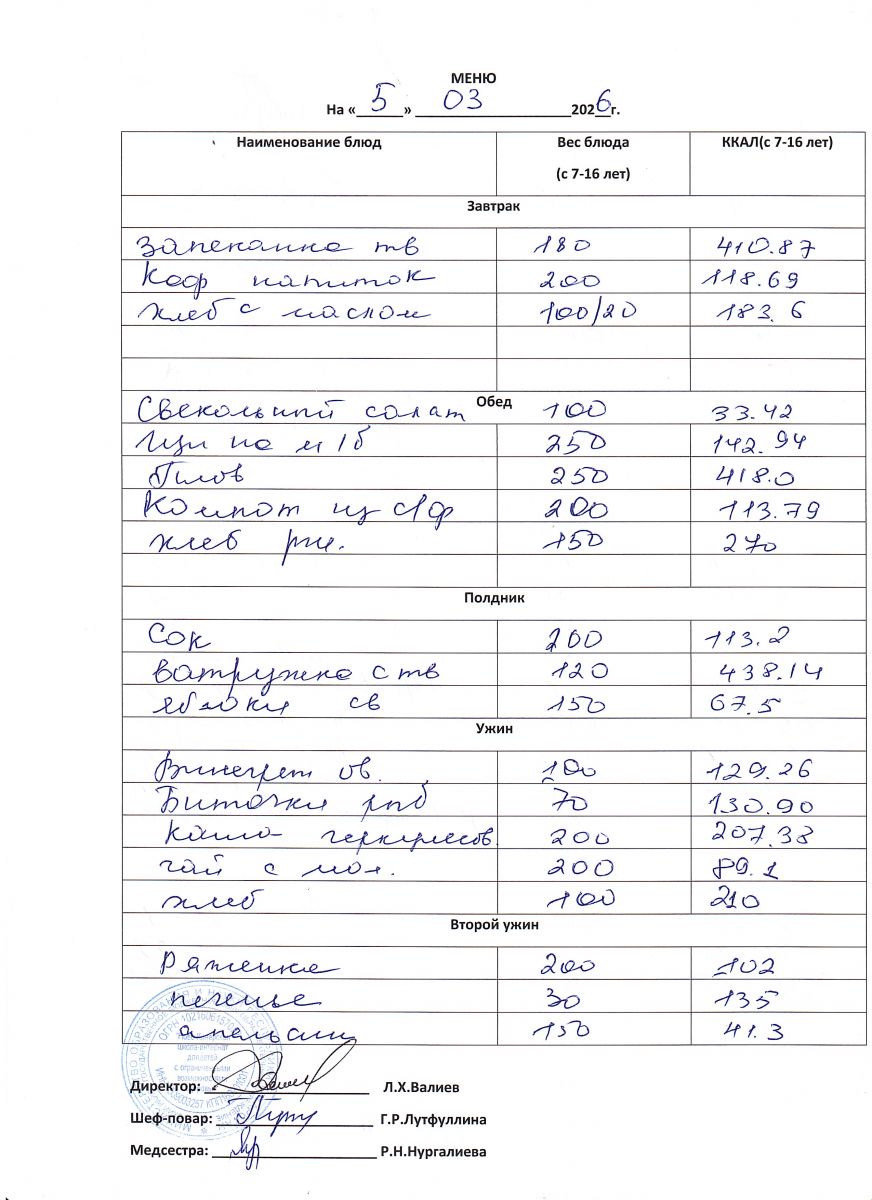 МЕНЮ
На « 5 » 03 2026 г.
Наименование блюд Вес блюда (с 7-16 лет) ККАЛ(с 7-16 лет)
Завтрак
Запеканка тв 180 410.87
Коф напиток 200 118.69
Хлеб с маслом 100/20 183.6
Обед
Свекольный салат 100 33.42
Щи на м/б 250 142.94
Плов 250 418.0
Компот из с/ф 200 113.79
хлеб рж. 150 270
Полдник
Сок 200 113.2
ватружка с тв 120 438.14
яблоки св 150 67.5
Ужин
Винегрет ов. 100 129.26
Биточки рпб 70 130.90
каша геркулесов. 200 207.38
чай с мол. 200 89.1
хлеб 100 210
Второй ужин
Ряженка 200 102
печенье 30 135
апельсин 150 41.3
Директор: Л.Х.Валиев
Шеф-повар: Г.Р.Лутфуллина
Медсестра: Р.Н.Нургалиева